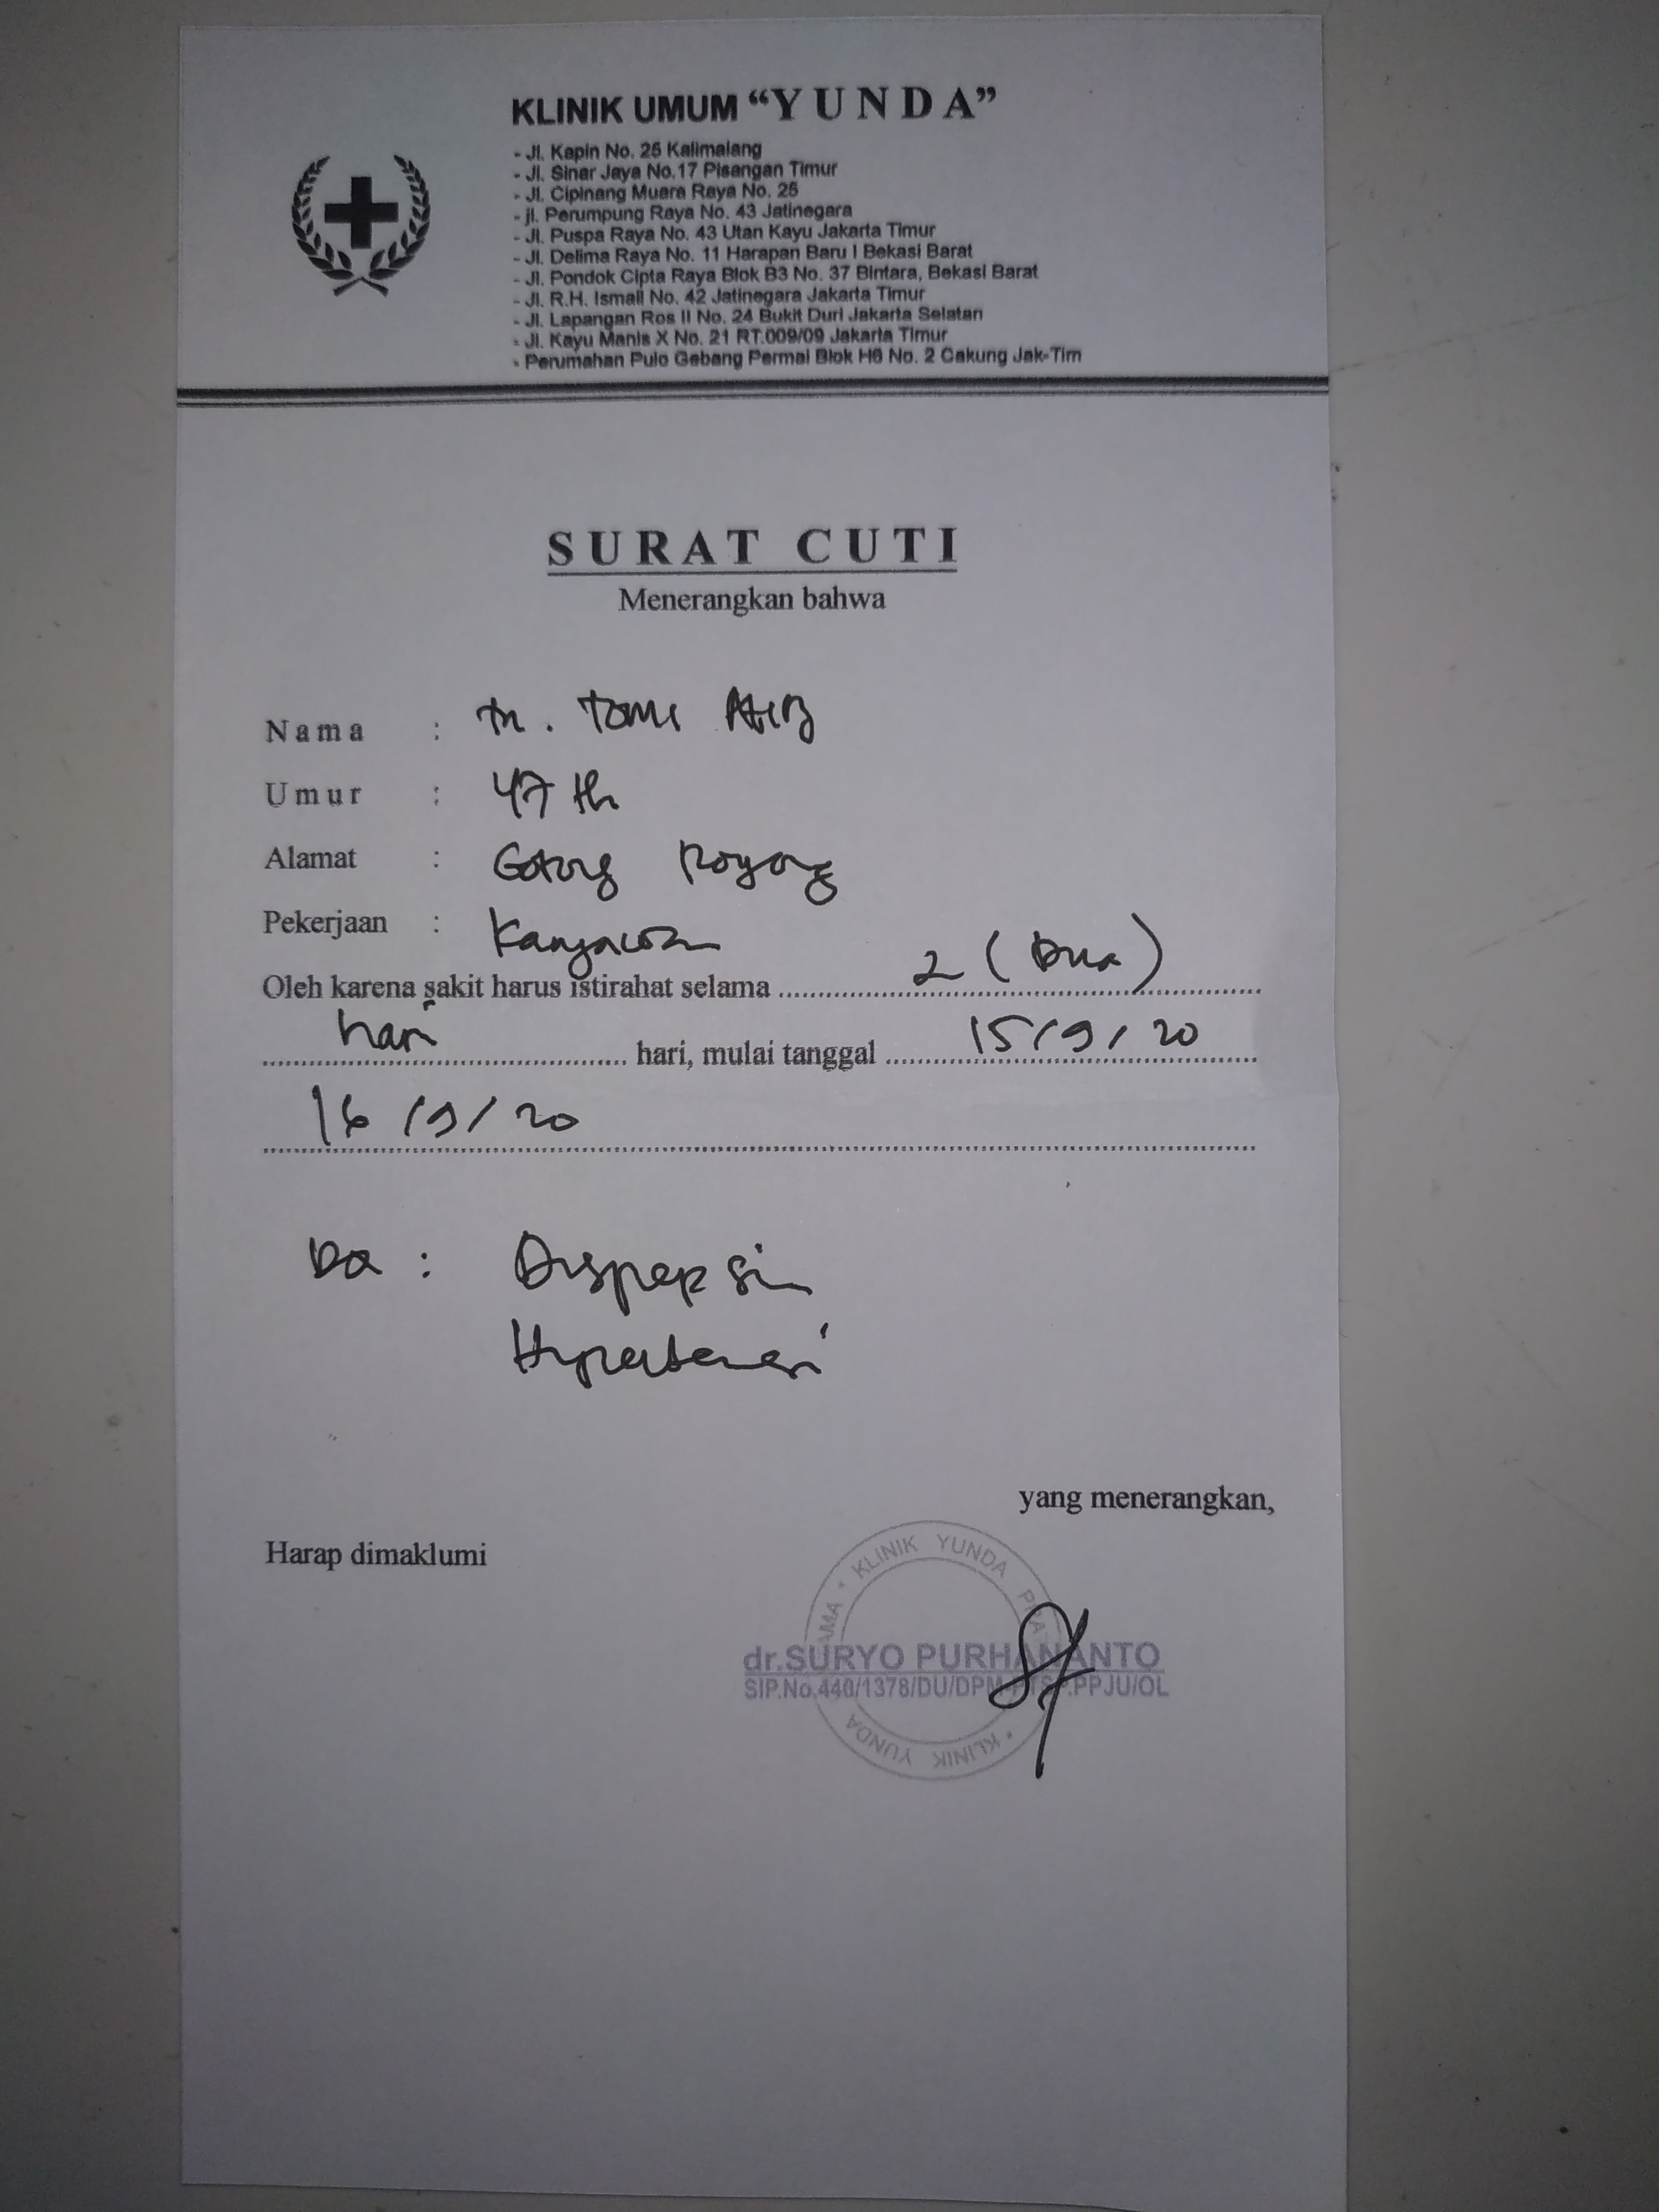 KLINIK UMUM “YUNDA”
- Jl. Kapin No. 25 Kalimalang
- Jl. Sinar Jaya No.17 Pisangan Timur
- Jl. Cipinang Muara Raya No. 25
- jl. Perumpung Raya No. 43 Jatinegara
- Jl. Puspa Raya No. 43 Utan Kayu Jakarta Timur
- Jl. Delima Raya No. 11 Harapan Baru I Bekasi Barat
- Jl. Pondok Cipta Raya Blok B3 No. 37 Bintara, Bekasi Barat
- Jl. R.H. Ismail No. 42 Jatinegara Jakarta Timur
- Jl. Lapangan Ros II No. 24 Bukit Duri Jakarta Selatan
- Jl. Kayu Manis X No. 21 RT.009/09 Jakarta Timur
- Perumahan Pulo Gebang Permai Blok H6 No. 2 Cakung Jak-Tim
SURAT CUTI
Menerangkan bahwa
Nama : Tn. Tomi
Umur : 47 th
Alamat : Gotong Royong
Pekerjaan : Karyawan
Oleh karena sakit harus istirahat selama 2 (Dua)
hari hari, mulai tanggal 15/9/20
16/9/20
Dx : Dispepsia
Hipertensi
yang menerangkan,
Harap dimaklumi
KLINIK YUNDA
dr.SURYO PURHANANTO
SIP.No.440/1378/DU/DPM-PTSP.PPJU/OL
KLINIK YUNDA